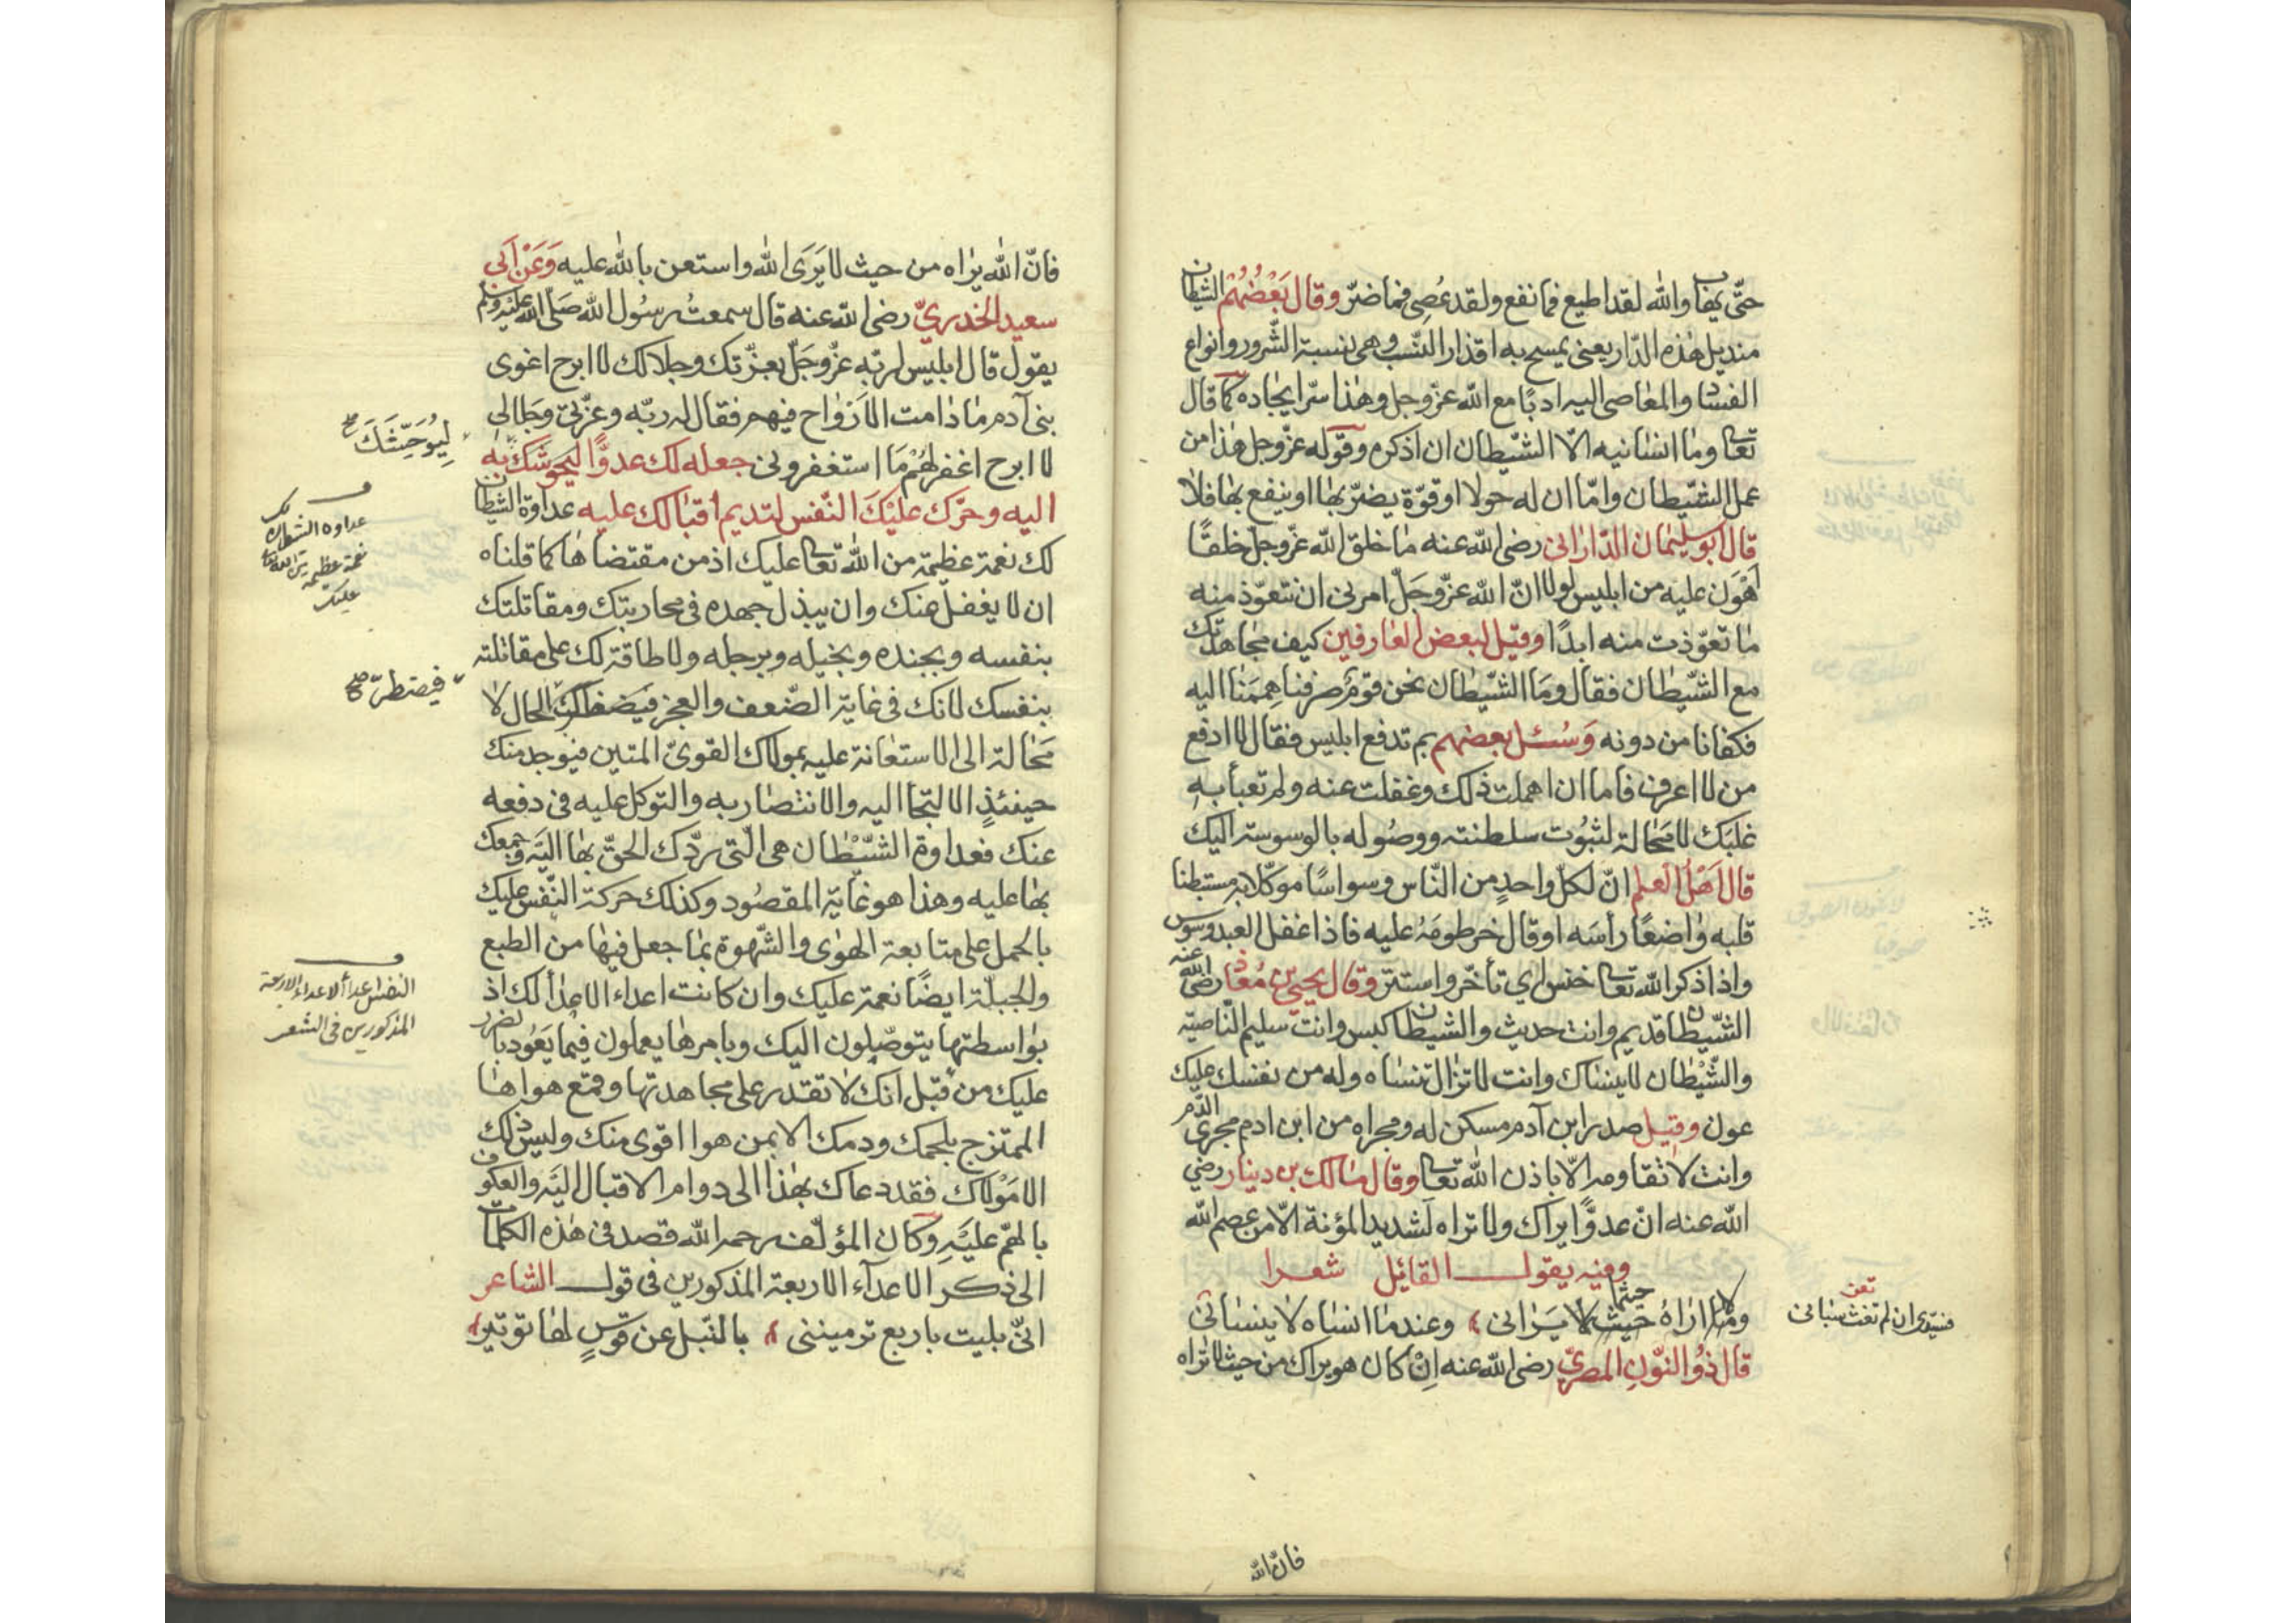 حتّى يهاب والله لقد اطيع فما نفع ولقد عُصِى فما ضرّ وقال بَعْضُهُمْ الشيطان
منديل هٰذه الدّار يعنى يمسح به اقذار النّسب وهى نسبة الشّرور وانواع
الفساد والمعٰاصى اليه ادبًا مع الله عزّ وجل وهٰذا سرّ ايجاده كما قال
تعالى ومٰا انسٰانيه الّا الشّيطان ان اذكره وقوله عزّ وجل هٰذا من
عمل الشّيطان وامّا ان له حولا او قوّة يضرّ بهٰا او ينفع بهٰا فلا
قال ابو سليمٰان الدّارٰانى رضى الله عنه مٰا خلق الله عزّ وجلّ خلقًا
اَهْوَن عليه من ابليس لولا انّ الله عزّ وجَلّ امرنى ان نتعوّذ منه
مٰا تعوّذت منه ابدًا وقيل لبعض العٰارفين كيف مجٰاهدتك
مع الشّيطٰان فقال ومَا الشّيطٰان نحن قوْمٌ صرفنا هِمَمَنا اليه
فكفانا من دونه وَسُئل بعضهم بم تدفع ابليس فقال لا ادفع
من لا اعرف فاما ان اهملت ذلك وغفلت عنه ولم تعبأ به
غلبَك لا مَحٰالة لثبُوت سلطنته ووصُوله بالوسوسة اليك
قال اَهْلُ العلم انّ لكلّ واحدٍ من النّاس وسواسًا موكّلا به مستبطنا
قلبه وٰاضعًا رأسَه او قال خرطومَهُ عليه فاذا غفل العبد وسوس
واذا ذكر الله تعالى خنس اي تأخّر واستتر وقال يحيى بن مُعٰاذ رضى الله عنه
الشّيطان قديم وانت حديث والشيطان كيس وانت سليم النّاصيّة
والشّيْطٰان لا ينسٰاك وانت لا تزٰال تنسٰاه وله من نفسك عليك
عون وقيل صدر ابن آدم مسكن له ومجراه من ابن ادم مجرى الدّم
وانت لا تقاومه الّا باذن الله تعالى وقال مٰالك بن دينار رضي
الله عنه انّ عدوًّا يراك ولا تراه لشديد المؤنة الّا من عصم الله
وفيه يقول القائل شعرا
ولا ارٰاهُ حيثما يَرٰانى وعندمٰا انسٰاه لا ينسٰانى
فسيّدى ان لم تغث سبانى
تعن
قال ذُو النّونِ المصريّ رضى الله عنه اِنْ كان هو يراك من حيث لا ترٰاه
فانّ الله
فانّ الله يرٰاه من حيث لا يَرَى الله واستعن بالله عليه وَعَنْ اَبى
سعيد الخدريّ رضى الله عنه قال سمعتُ رسُول الله صَلّى الله عليْه وسلم
يقول قال ابليس لربّهِ عزّ وجَلّ بعزّتك وجلالك لا ابرح اغوى
بنى آدم مٰا دٰامت الارْوٰاح فيهم فقال له ربّه وعزّتى وجَلالى
لا ابرح اغفر لهُمْ مَا استغفرونى جعله لك عدوًّا ليحوشَكَ بِه
لِيُوحِّشَكَ صح
اليه وحَرّك عليْكَ النّفس لتديم اقبٰالك عليه عداوة الشيطان
عداوة الشيطان لك
نعمة عظيمة من الله تعالى
عليك
لك نعمة عظيمة من الله تعالى عليك اذ من مقتضاهٰا كما قلناه
ان لا يغفل عنك وان يبذل جهده فى محاربتك ومقاتلتك
بنفسه وبجنده وبخيله وبرجله ولا طاقة لك على مقاتلته
بنفسك لانك فى غاية الضّعف والعجز فيضطرّك الحال لا
فيضطرّ صح
مَحٰالة الى الاستعٰانة عليه بمولاك القوىّ المتين فيوجد منك
حينئذٍ الالتجٰا اليه والانتصٰار به والتوكل عليه فى دفعه
عنك فعداوة الشّيْطٰان هى الّتى تردّك الحقّ بهٰا اليْه وجمعك
بهٰا عليه وهذا هو غٰاية المقصُود وكذلك حركة النّفس عليك
بالحمل على متابعة الهوٰى والشّهوة بمٰا جعل فيهٰا من الطبع
والجبلّة ايضًا نعمة عليك وان كانت اعداء الاعدٰاْ لك اذ
النفس اعدأ الاعداء الاربعة
المذكورين فى الشعر
بوٰاسطتها يتوصّلون اليك وبامرهٰا يعملون فيمٰا يَعُود بالضرر
عليك من قبل انك لا تقدر على مجاهدتها وقمع هواهٰا
الممتزج بلحمك ودمك الا بمن هو اقوى منك وليس ذلك
الا مَوْلاك فقد دعاك بهٰذا الى دوام الاقبال اليْه والعكوف
بالهمّ عليْهِ وكان المؤلّف رحمه الله قصد فى هٰذه الكلمات
الى ذكر الاعدآء الاربعة المذكورين فى قول الشاعر
انّى بليت باربع ترميننى بالنّبل عن قوسٍ لهٰا توتير